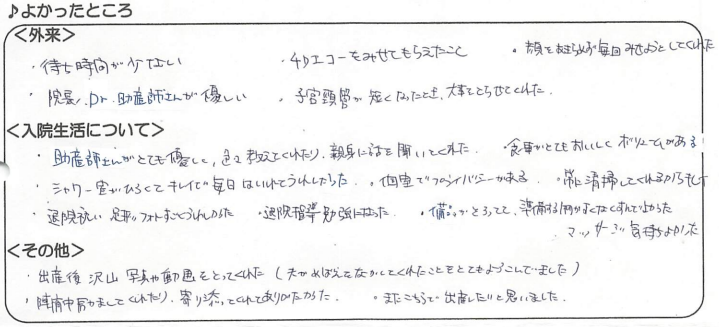 ♪よかったところ
<外来>
・待ち時間が少ない ・4Dエコーをみせてもらえたこと ・顔をあきらめず毎回みせようとしてくれた
・院長、Dr、助産師さんが優しい ・子宮頸管が短くなったとき、大事をとらせてくれた.
<入院生活について>
・助産師さんがとても優しく、色々教えてくれたり、親身に話を聞いてくれた. ・食事がとてもおいしくボリュームがある
・シャワー室がひろくてキレイで毎日はいれてうれしかった. ・個室でプライバシーがある. ・常に清掃してくれる
・退院祝い 足形フォトすごくうれしかった ・退院指導勉強になった. ・備品がそろってて、準備する物がすくなくすんでよかった
・マッサージ気持ちよかった
<その他>
・出産後 沢山 写真や動画をとってくれた (夫がおぼえてなかしてくれたことをとてもよろこんでいました)
・陣痛中 励ましてくれたり、寄り添ってくれてありがたかった. ・またこちらで出産したいと思いました.